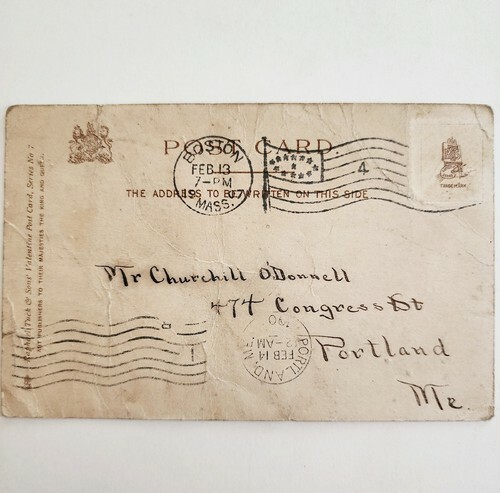 POST CARD
THE ADDRESS TO BE WRITTEN ON THIS SIDE
BOSTON
FEB 13
7-PM
MASS.
4
TRADE MARK
Mr Churchill O'Donnell
474 Congress St
Portland
Me.
PORTLAND, ME
FEB 14
-AM
Raphael Tuck & Sons' Valentine Post Card, Series No 7
ART PUBLISHERS TO THEIR MAJESTIES THE KING AND QUEEN